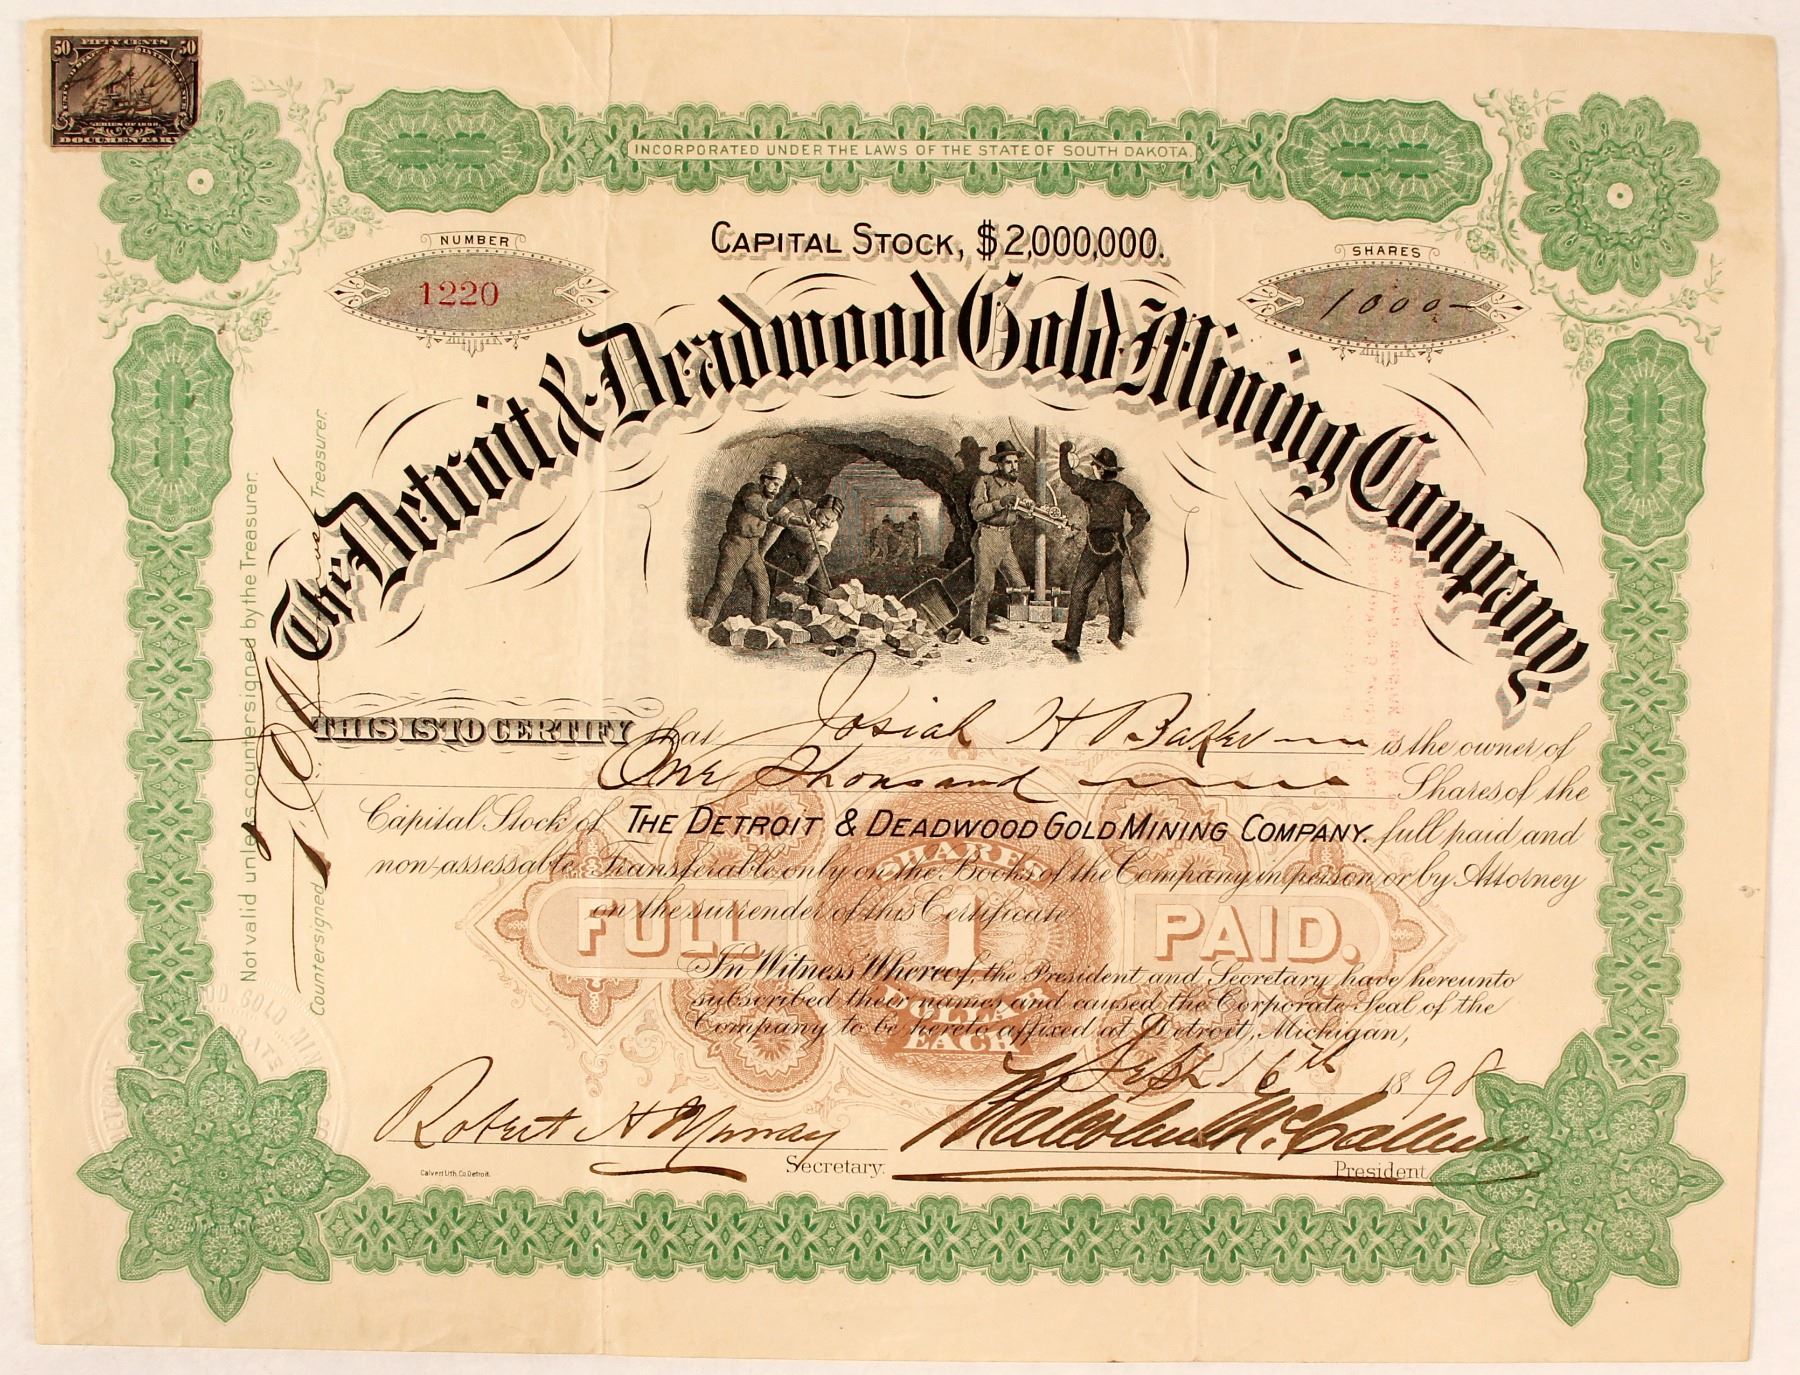 50 FIFTY CENTS 50
SERIES OF 1898
DOCUMENTARY
INCORPORATED UNDER THE LAWS OF THE STATE OF SOUTH DAKOTA.
CAPITAL STOCK, $2,000,000.
NUMBER
1220
SHARES
1000
The Detroit & Deadwood Gold Mining Company.
THIS IS TO CERTIFY that Josiah H Baker is the owner of
One Thousand Shares of the
Capital Stock of THE DETROIT & DEADWOOD GOLD MINING COMPANY. full paid and
non-assessable Transferable only on the Books of the Company in person or by Attorney
on the surrender of this Certificate
SHARES
FULL 1 PAID.
DOLLAR
EACH
In Witness Whereof, the President and Secretary have hereunto
subscribed their names and caused the Corporate Seal of the
Company to be hereto affixed at Detroit, Michigan,
Sept 16th 1898
Robert H Murray
Secretary.
Malcolm McCallum
President
Calvert Lith. Co. Detroit.
Not valid unless countersigned by the Treasurer.
Countersigned Treasurer.